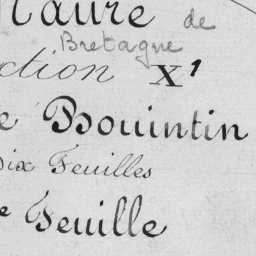 Maure de
Bretagne
ction X¹
e Bouintin
Dix Feuilles
e Feuille